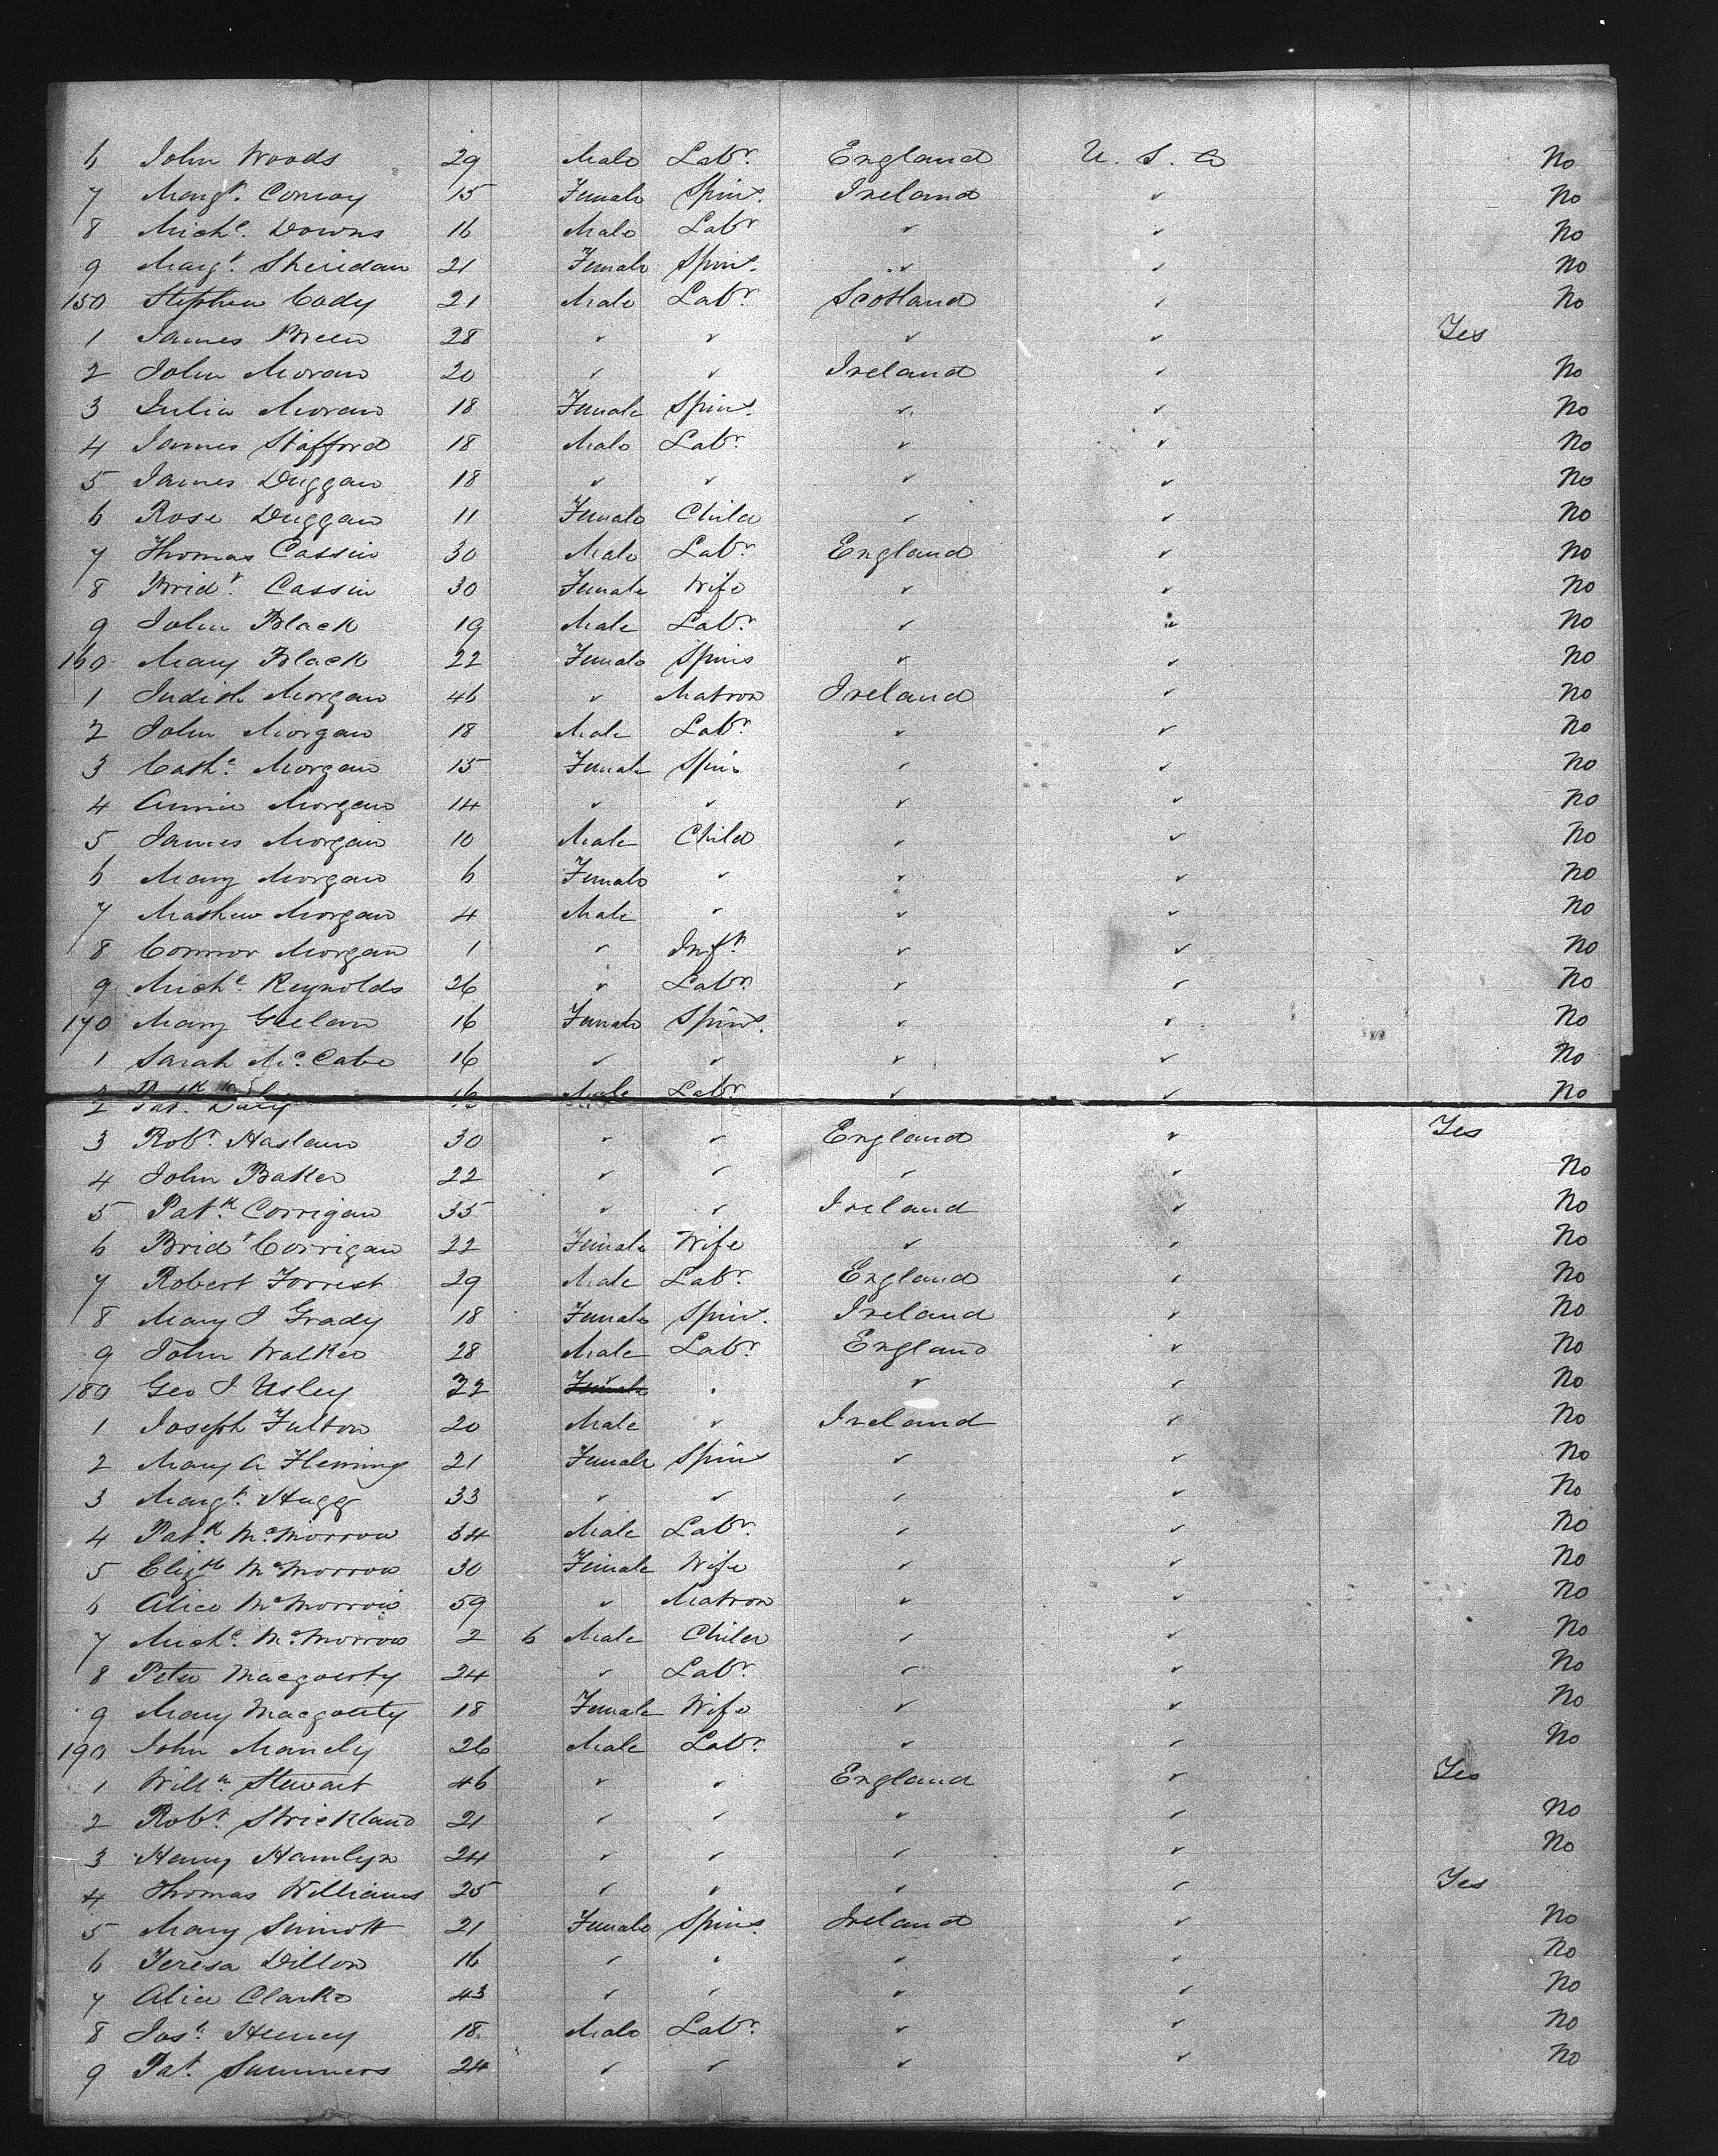 6 John Woods 29 Male Labr. England U. S. A No
7 Margt. Conroy 15 Female Spinr. Ireland ✓ No
8 Michl. Downs 16 Male Labr ✓ ✓ No
9 Margt. Sheridan 21 Female Spinr. ✓ ✓ No
150 Stephen Cody 21 Male Labr. Scotland ✓ No
1 James Breen 28 ✓ ✓ ✓ ✓ Yes
2 John Moran 20 ✓ ✓ Ireland ✓ No
3 Julia Moran 18 Female Spinr. ✓ ✓ No
4 James Stafford 18 Male Labr. ✓ ✓ No
5 James Duggan 18 ✓ ✓ ✓ ✓ No
6 Rose Duggan 11 Female Child ✓ ✓ No
7 Thomas Cassin 30 Male Labr. England ✓ No
8 Bridt. Cassin 30 Female Wife ✓ ✓ No
9 John Black 19 Male Labr. ✓ ✓ No
160 Mary Black 22 Female Spins ✓ ✓ No
1 Judith Morgan 46 ✓ Matron Ireland ✓ No
2 John Morgan 18 Male Labr. ✓ ✓ No
3 Cathe. Morgan 15 Female Spins ✓ ✓ No
4 Annie Morgan 14 ✓ ✓ ✓ ✓ No
5 James Morgan 10 Male Child ✓ ✓ No
6 Mary Morgan 6 Female ✓ ✓ ✓ No
7 Mathew Morgan 4 Male ✓ ✓ ✓ No
8 Connor Morgan 1 ✓ Inft. ✓ ✓ No
9 Michl. Reynolds 26 ✓ Labr. ✓ ✓ No
170 Mary Geelan 16 Female Spinr. ✓ ✓ No
1 Sarah McCabe 16 ✓ ✓ ✓ ✓ No
2 Patk. Daly 16 Male Labr ✓ ✓ No
3 Robt. Haslam 30 ✓ ✓ England ✓ Yes
4 John Baker 22 ✓ ✓ ✓ ✓ No
5 Patk. Corrigan 35 ✓ ✓ Ireland ✓ No
6 Bridt Corrigan 22 Female Wife ✓ ✓ No
7 Robert Forrest 29 Male Labr. England ✓ No
8 Mary J Grady 18 Female Spinr. Ireland ✓ No
9 John Walker 28 Male Labr. England ✓ No
180 Geo J 22 Female ✓ ✓ ✓ No
1 Joseph Fulton 20 Male ✓ Ireland ✓ No
2 Mary A Fleming 21 Female Spinr ✓ ✓ No
3 Margt. Hugg 33 ✓ ✓ ✓ ✓ No
4 Patk. McMorrow 34 Male Labr. ✓ ✓ No
5 Elizth McMorrow 30 Female Wife ✓ ✓ No
6 Alice McMorrow 59 ✓ Matron ✓ ✓ No
7 Michl. McMorrow 2 6 Male Child ✓ ✓ No
8 Peter Macgourty 24 ✓ Labr. ✓ ✓ No
9 Mary Macgourty 18 Female Wife ✓ ✓ No
190 John Mandy 26 Male Labr. ✓ ✓ No
1 Willm Stewart 46 ✓ ✓ England ✓ Yes
2 Robt. Strickland 21 ✓ ✓ ✓ ✓ No
3 Henry Hamlyn 24 ✓ ✓ ✓ ✓ No
4 Thomas Williams 25 ✓ ✓ ✓ ✓ Yes
5 Mary Sinnott 21 Female Spins Ireland ✓ No
6 Teresa Dillon 16 ✓ ✓ ✓ ✓ No
7 Alice Clarke 43 ✓ ✓ ✓ ✓ No
8 Josh. 18 Male Labr. ✓ ✓ No
9 Pat. Summers 24 ✓ ✓ ✓ ✓ No